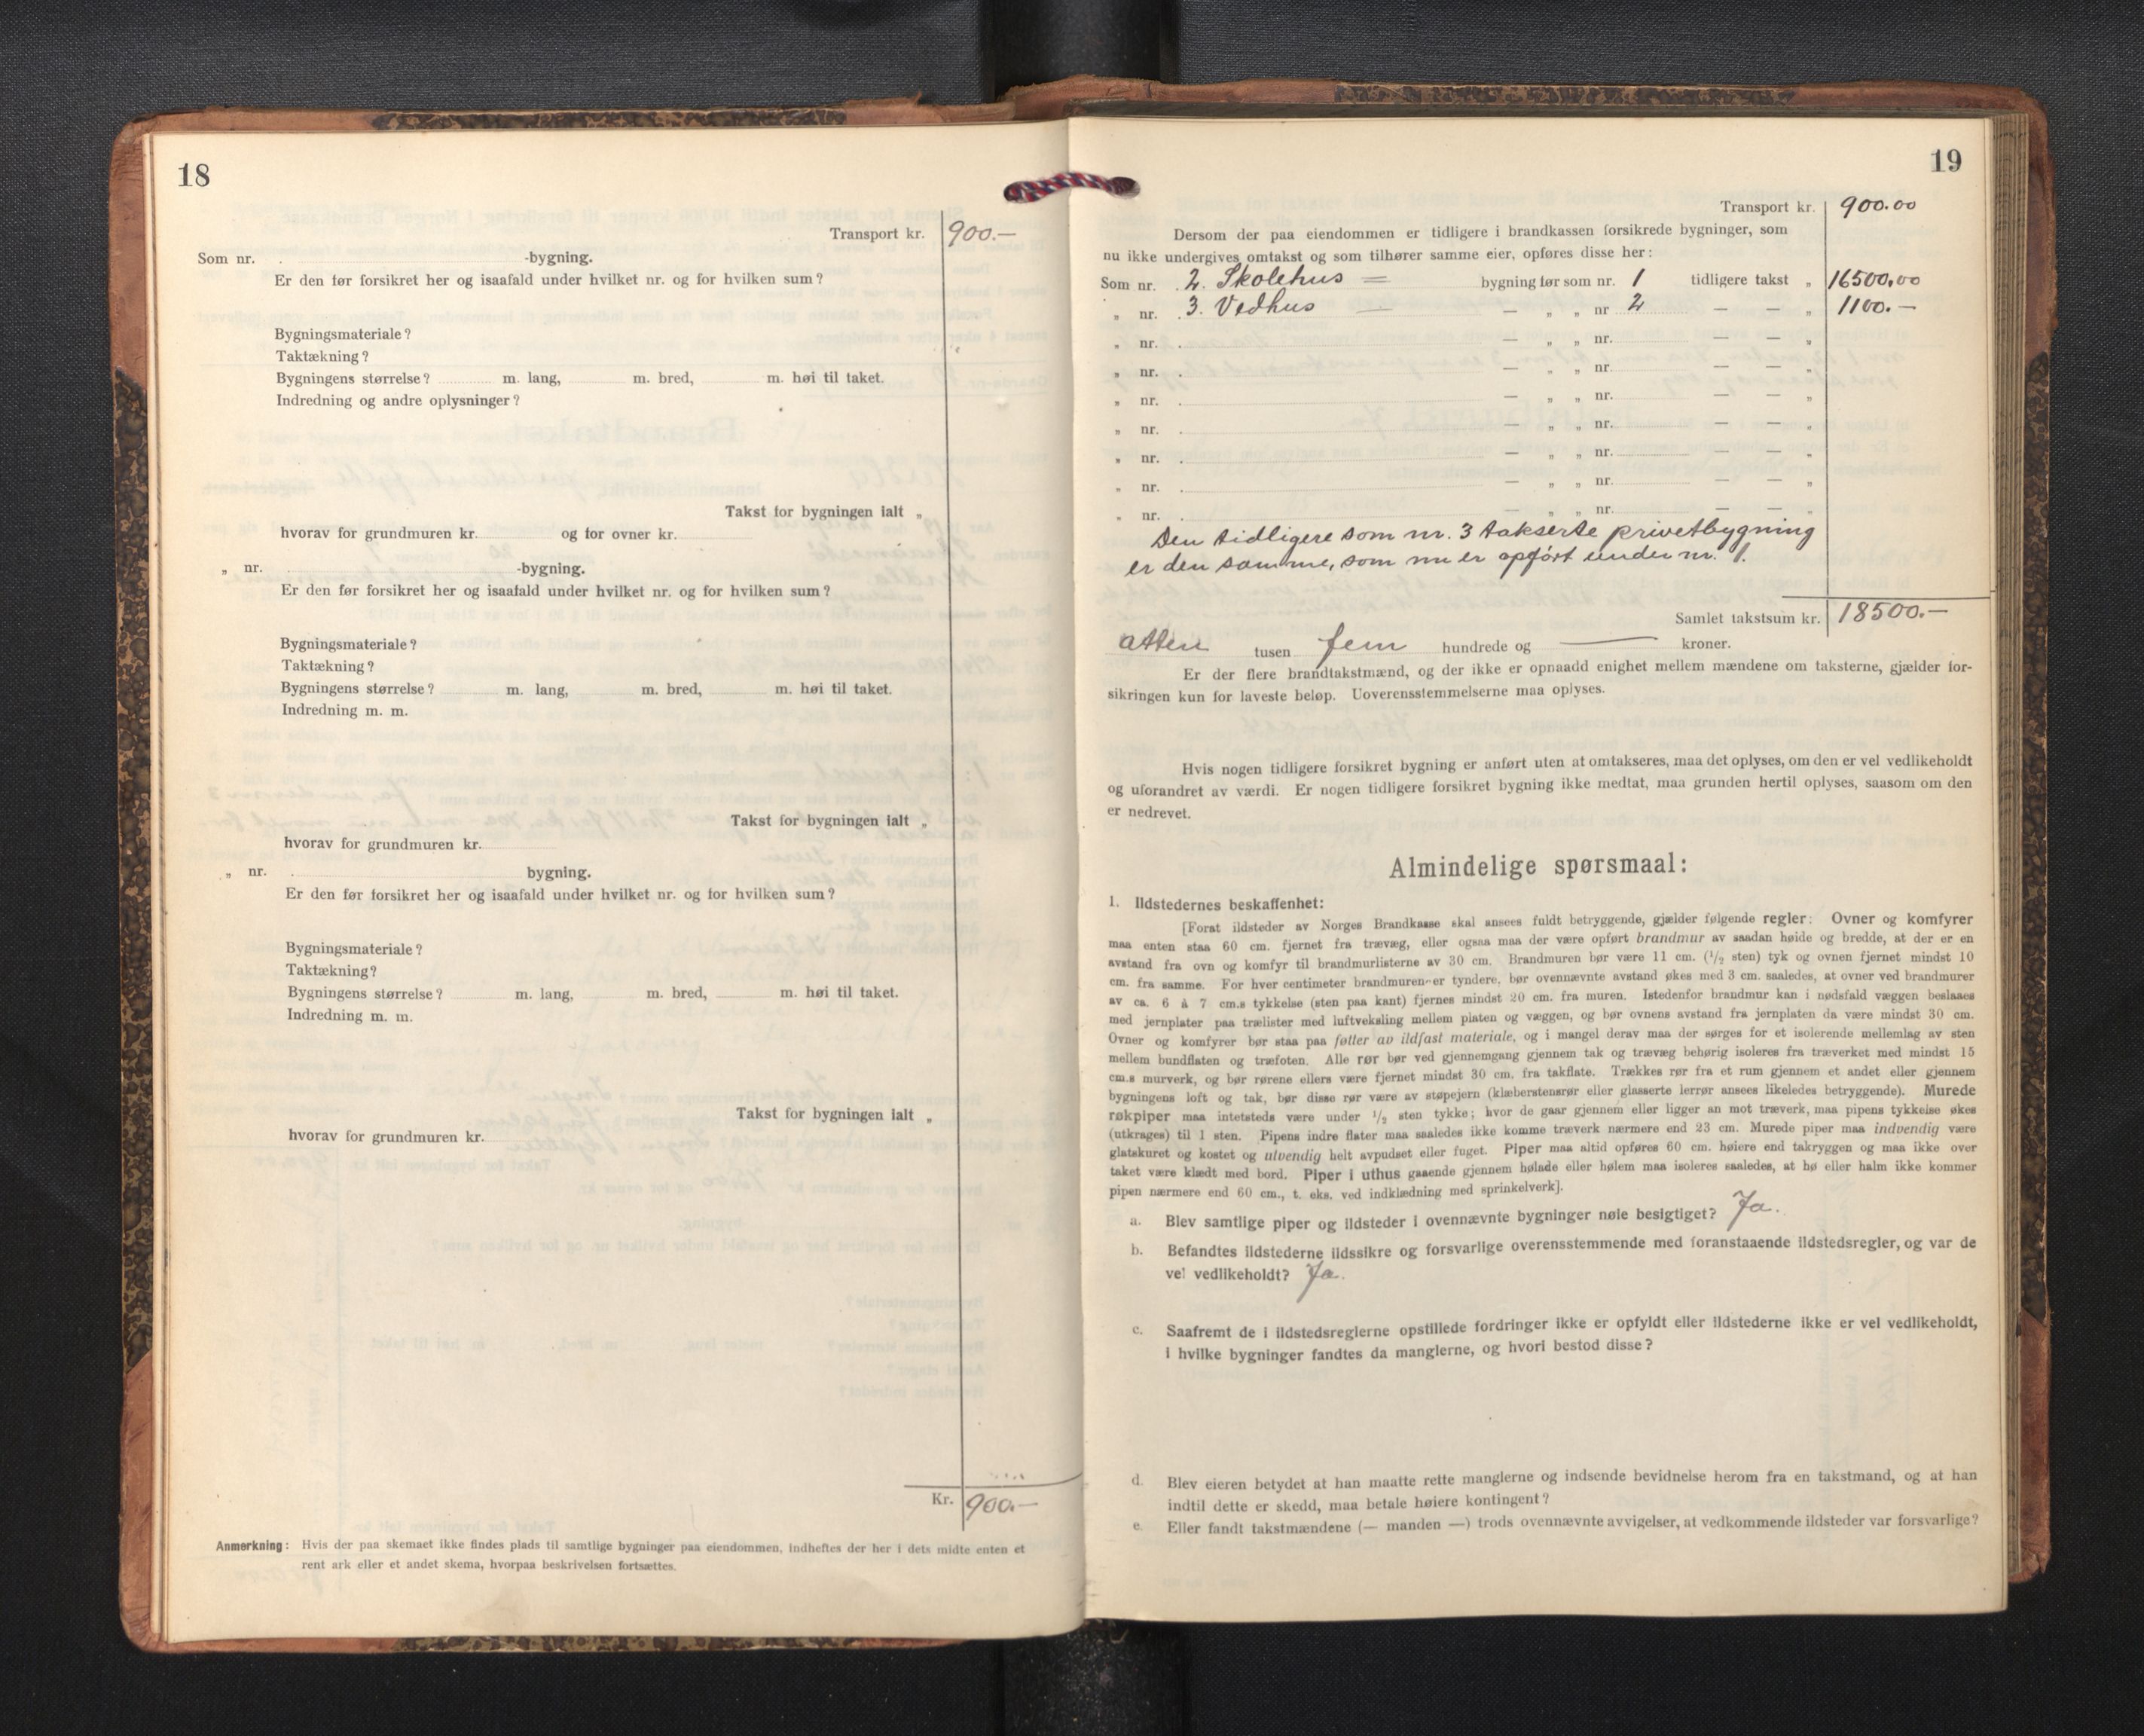 18
Transport kr. 900.—
Som nr. -bygning.
Er den før forsikret her og isaafald under hvilket nr. og for hvilken sum?
Bygningsmateriale?
Taktækning?
Bygningens størrelse? m. lang, m. bred, m. høi til taket.
Indredning og andre oplysninger?
Takst for bygningen ialt „
hvorav for grundmuren kr. og for ovner kr.
„ nr. -bygning.
Er den før forsikret her og isaafald under hvilket nr. og for hvilken sum?
Bygningsmateriale?
Taktækning?
Bygningens størrelse? m. lang, m. bred, m. høi til taket.
Indredning m. m.
Takst for bygningen ialt „
hvorav for grundmuren kr.
„ nr. bygning.
Er den før forsikret her og isaafald under hvilket nr. og for hvilken sum?
Bygningsmateriale?
Taktækning?
Bygningens størrelse? m. lang, m. bred, m. høi til taket.
Indredning m. m.
Takst for bygningen ialt „
hvorav for grundmuren kr.
Kr. 900.—
Anmerkning: Hvis der paa skemaet ikke findes plads til samtlige bygninger paa eiendommen, indheftes der her i dets midte enten et
rent ark eller et andet skema, hvorpaa beskrivelsen fortsættes.
19
Transport kr. 900.00
Dersom der paa eiendommen er tidligere i brandkassen forsikrede bygninger, som
nu ikke undergives omtakst og som tilhører samme eier, opføres disse her:
Som nr. 2. Skolehus = bygning før som nr. 1 tidligere takst „ 16500,00
„ nr. 3. Vedhus — — „ „ nr 2 — — „ 1100.—
„ nr. — „ „ nr. — — „
„ nr. — „ „ nr. — — „
„ nr. — „ „ nr. — — „
„ nr. — „ „ nr. — — „
„ nr. — „ „ nr. — — „
„ nr. — „ „ nr. — — „
„ nr. — „ „ nr. — — „
Den tidligere som nr. 3 takserte privetbygning
er den samme, som nu er opført under nr. 1.
Samlet takstsum kr. 18500.—
atten tusen fem hundrede og — kroner.
Er der flere brandtakstmænd, og der ikke er opnaadd enighet mellem mændene om taksterne, gjælder for-
sikringen kun for laveste beløp. Uoverensstemmelserne maa oplyses.
Hvis nogen tidligere forsikret bygning er anført uten at omtakseres, maa det oplyses, om den er vel vedlikeholdt
og uforandret av værdi. Er nogen tidligere forsikret bygning ikke medtat, maa grunden hertil oplyses, saasom om den
er nedrevet.
Almindelige spørsmaal:
1. Ildstedernes beskaffenhet:
[Forat ildsteder av Norges Brandkasse skal ansees fuldt betryggende, gjælder følgende regler: Ovner og komfyrer
maa enten staa 60 cm. fjernet fra trævæg, eller ogsaa maa der være opført brandmur av saadan høide og bredde, at der er en
avstand fra ovn og komfyr til brandmurlisterne av 30 cm. Brandmuren bør være 11 cm. (1/2 sten) tyk og ovnen fjernet mindst 10
cm. fra samme. For hver centimeter brandmuren er tyndere, bør ovennævnte avstand økes med 3 cm. saaledes, at ovner ved brandmurer
av ca. 6 à 7 cm.s tykkelse (sten paa kant) fjernes mindst 20 cm. fra muren. Istedenfor brandmur kan i nødsfald væggen beslaaes
med jernplater paa trælister med luftveksling mellem platen og væggen, og bør ovnens avstand fra jernplaten da være mindst 30 cm.
Ovner og komfyrer bør staa paa føtter av ildfast materiale, og i mangel derav maa der sørges for et isolerende mellemlag av sten
mellem bundflaten og træfoten. Alle rør bør ved gjennemgang gjennem tak og trævæg behørig isoleres fra træverket med mindst 15
cm.s murverk, og bør rørene ellers være fjernet mindst 30 cm. fra takflate. Trækkes rør fra et rum gjennem et andet eller gjennem
bygningens loft og tak, bør disse rør være av støpejern (klæberstensrør eller glasserte lerrør ansees likeledes betryggende). Murede
røkpiper maa intetsteds være under 1/2 sten tykke; hvor de gaar gjennem eller ligger an mot træverk, maa pipens tykkelse økes
(utkrages) til 1 sten. Pipens indre flater maa saaledes ikke komme træverk nærmere end 23 cm. Murede piper maa indvendig være
glatskuret og kostet og utvendig helt avpudset eller fuget. Piper maa altid opføres 60 cm. høiere end takryggen og maa ikke over
taket være klædt med bord. Piper i uthus gaaende gjennem hølade eller hølem maa isoleres saaledes, at hø eller halm ikke kommer
pipen nærmere end 60 cm., t. eks. ved indklædning med sprinkelverk].
a. Blev samtlige piper og ildsteder i ovennævnte bygninger nøie besigtiget? Ja.
b. Befandtes ildstederne ildssikre og forsvarlige overensstemmende med foranstaaende ildstedsregler, og var de
vel vedlikeholdt? Ja.
c. Saafremt de i ildstedsreglerne opstillede fordringer ikke er opfyldt eller ildstederne ikke er vel vedlikeholdt,
i hvilke bygninger fandtes da manglerne, og hvori bestod disse?
d. Blev eieren betydet at han maatte rette manglerne og indsende bevidnelse herom fra en takstmand, og at han
indtil dette er skedd, maa betale høiere kontingent?
e. Eller fandt takstmændene (— manden —) trods ovennævnte avvigelser, at vedkommende ildsteder var forsvarlige?